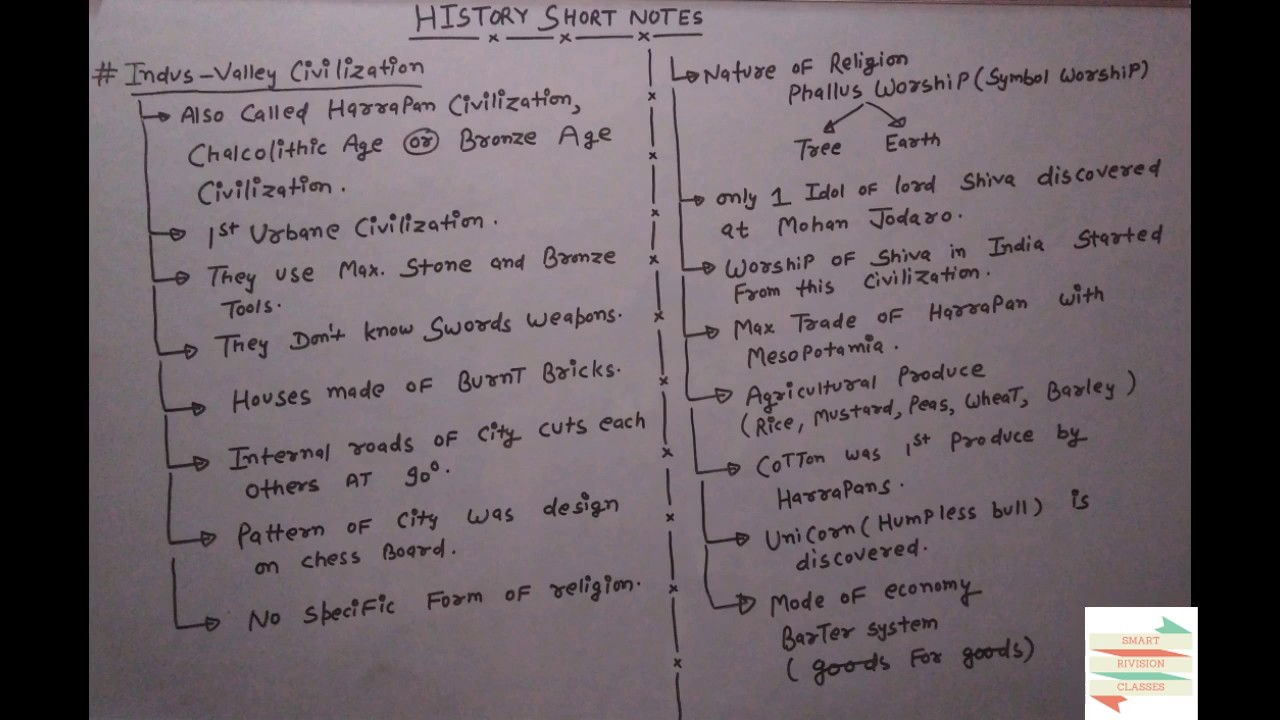 HISTORY SHORT NOTES
# Indus-Valley Civilization
Also Called Harrapan Civilization,
Chalcolithic Age or Bronze Age
Civilization.
1st Urbane Civilization.
They use Max. Stone and Bronze
Tools.
They Don't know Swords Weapons.
Houses made of Burnt Bricks.
Internal roads of city cuts each
others AT 90°.
Pattern of city was design
on chess Board.
No specific Form of religion.
Nature of Religion
Phallus Worship (Symbol Worship)
Tree Earth
only 1 Idol of lord Shiva discovered
at Mohan Jodaro.
Worship of Shiva in India Started
From this Civilization.
Max Trade of Harrapan with
Mesopotamia.
Agricultural Produce
(Rice, Mustard, Peas, Wheat, Barley)
Cotton was 1st Produce by
Harrapans.
Unicorn (Humpless bull) is
discovered.
Mode of economy
Barter system
(goods For goods)
SMART
RIVISION
CLASSES